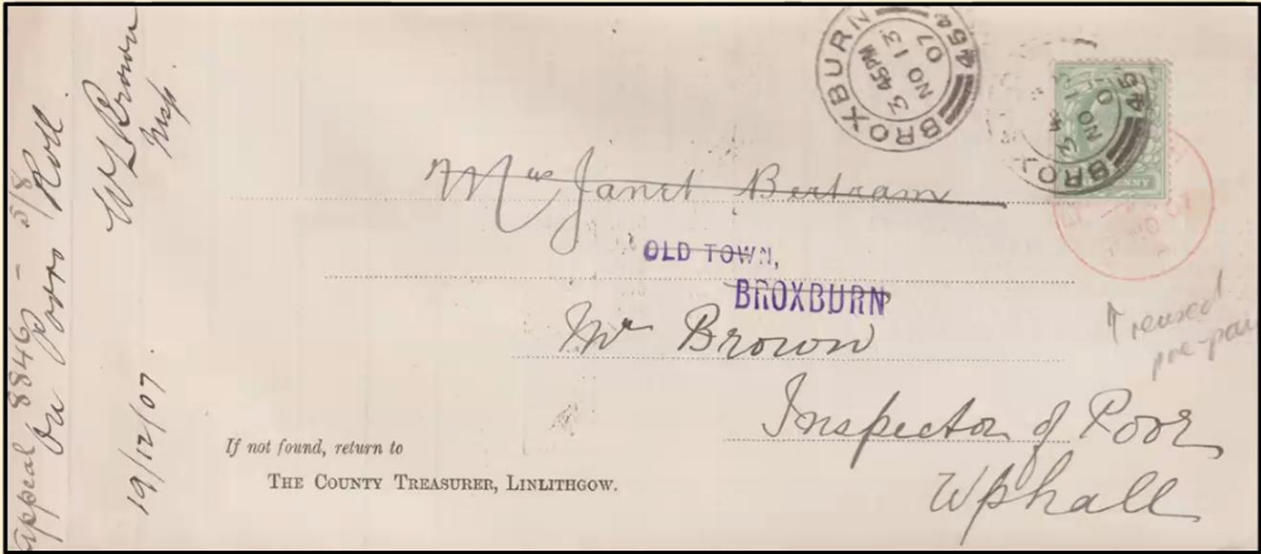 Appeal 8846 – 5/8
On Poors Roll.
19/12/07.
W L Brown
Insp.
BROXBURN
3 45PM
NO 13
07
BROX
45
3 4
NO
PENNY
Mrs Janet Bertram
OLD TOWN,
BROXBURN
Mr Brown
Inspector of Poor
Uphall
reused
pre-pai
If not found, return to
THE COUNTY TREASURER, LINLITHGOW.